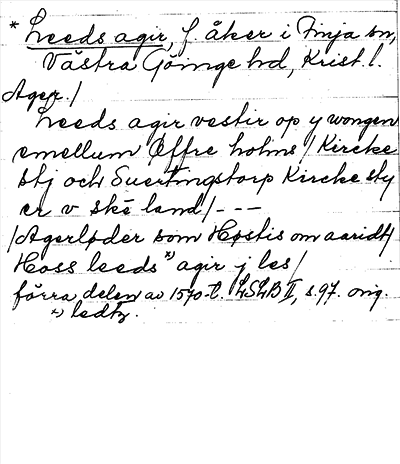 * Leeds agir, f. åker i Finja sn,
Västra Göinge hd, Krist. l.
Ager. /
Leeds agir vestir op y wongen
emellum Øffre holms / Kircke
stj och Suertingstorp Kircke sty
er v ske land / - - -
/ Agerløder som Høstis om aaridt /
Hoss leeds *) agir j les /
förra delen av 1570-t. LSLB II, s. 97. orig.
*) ledtz.